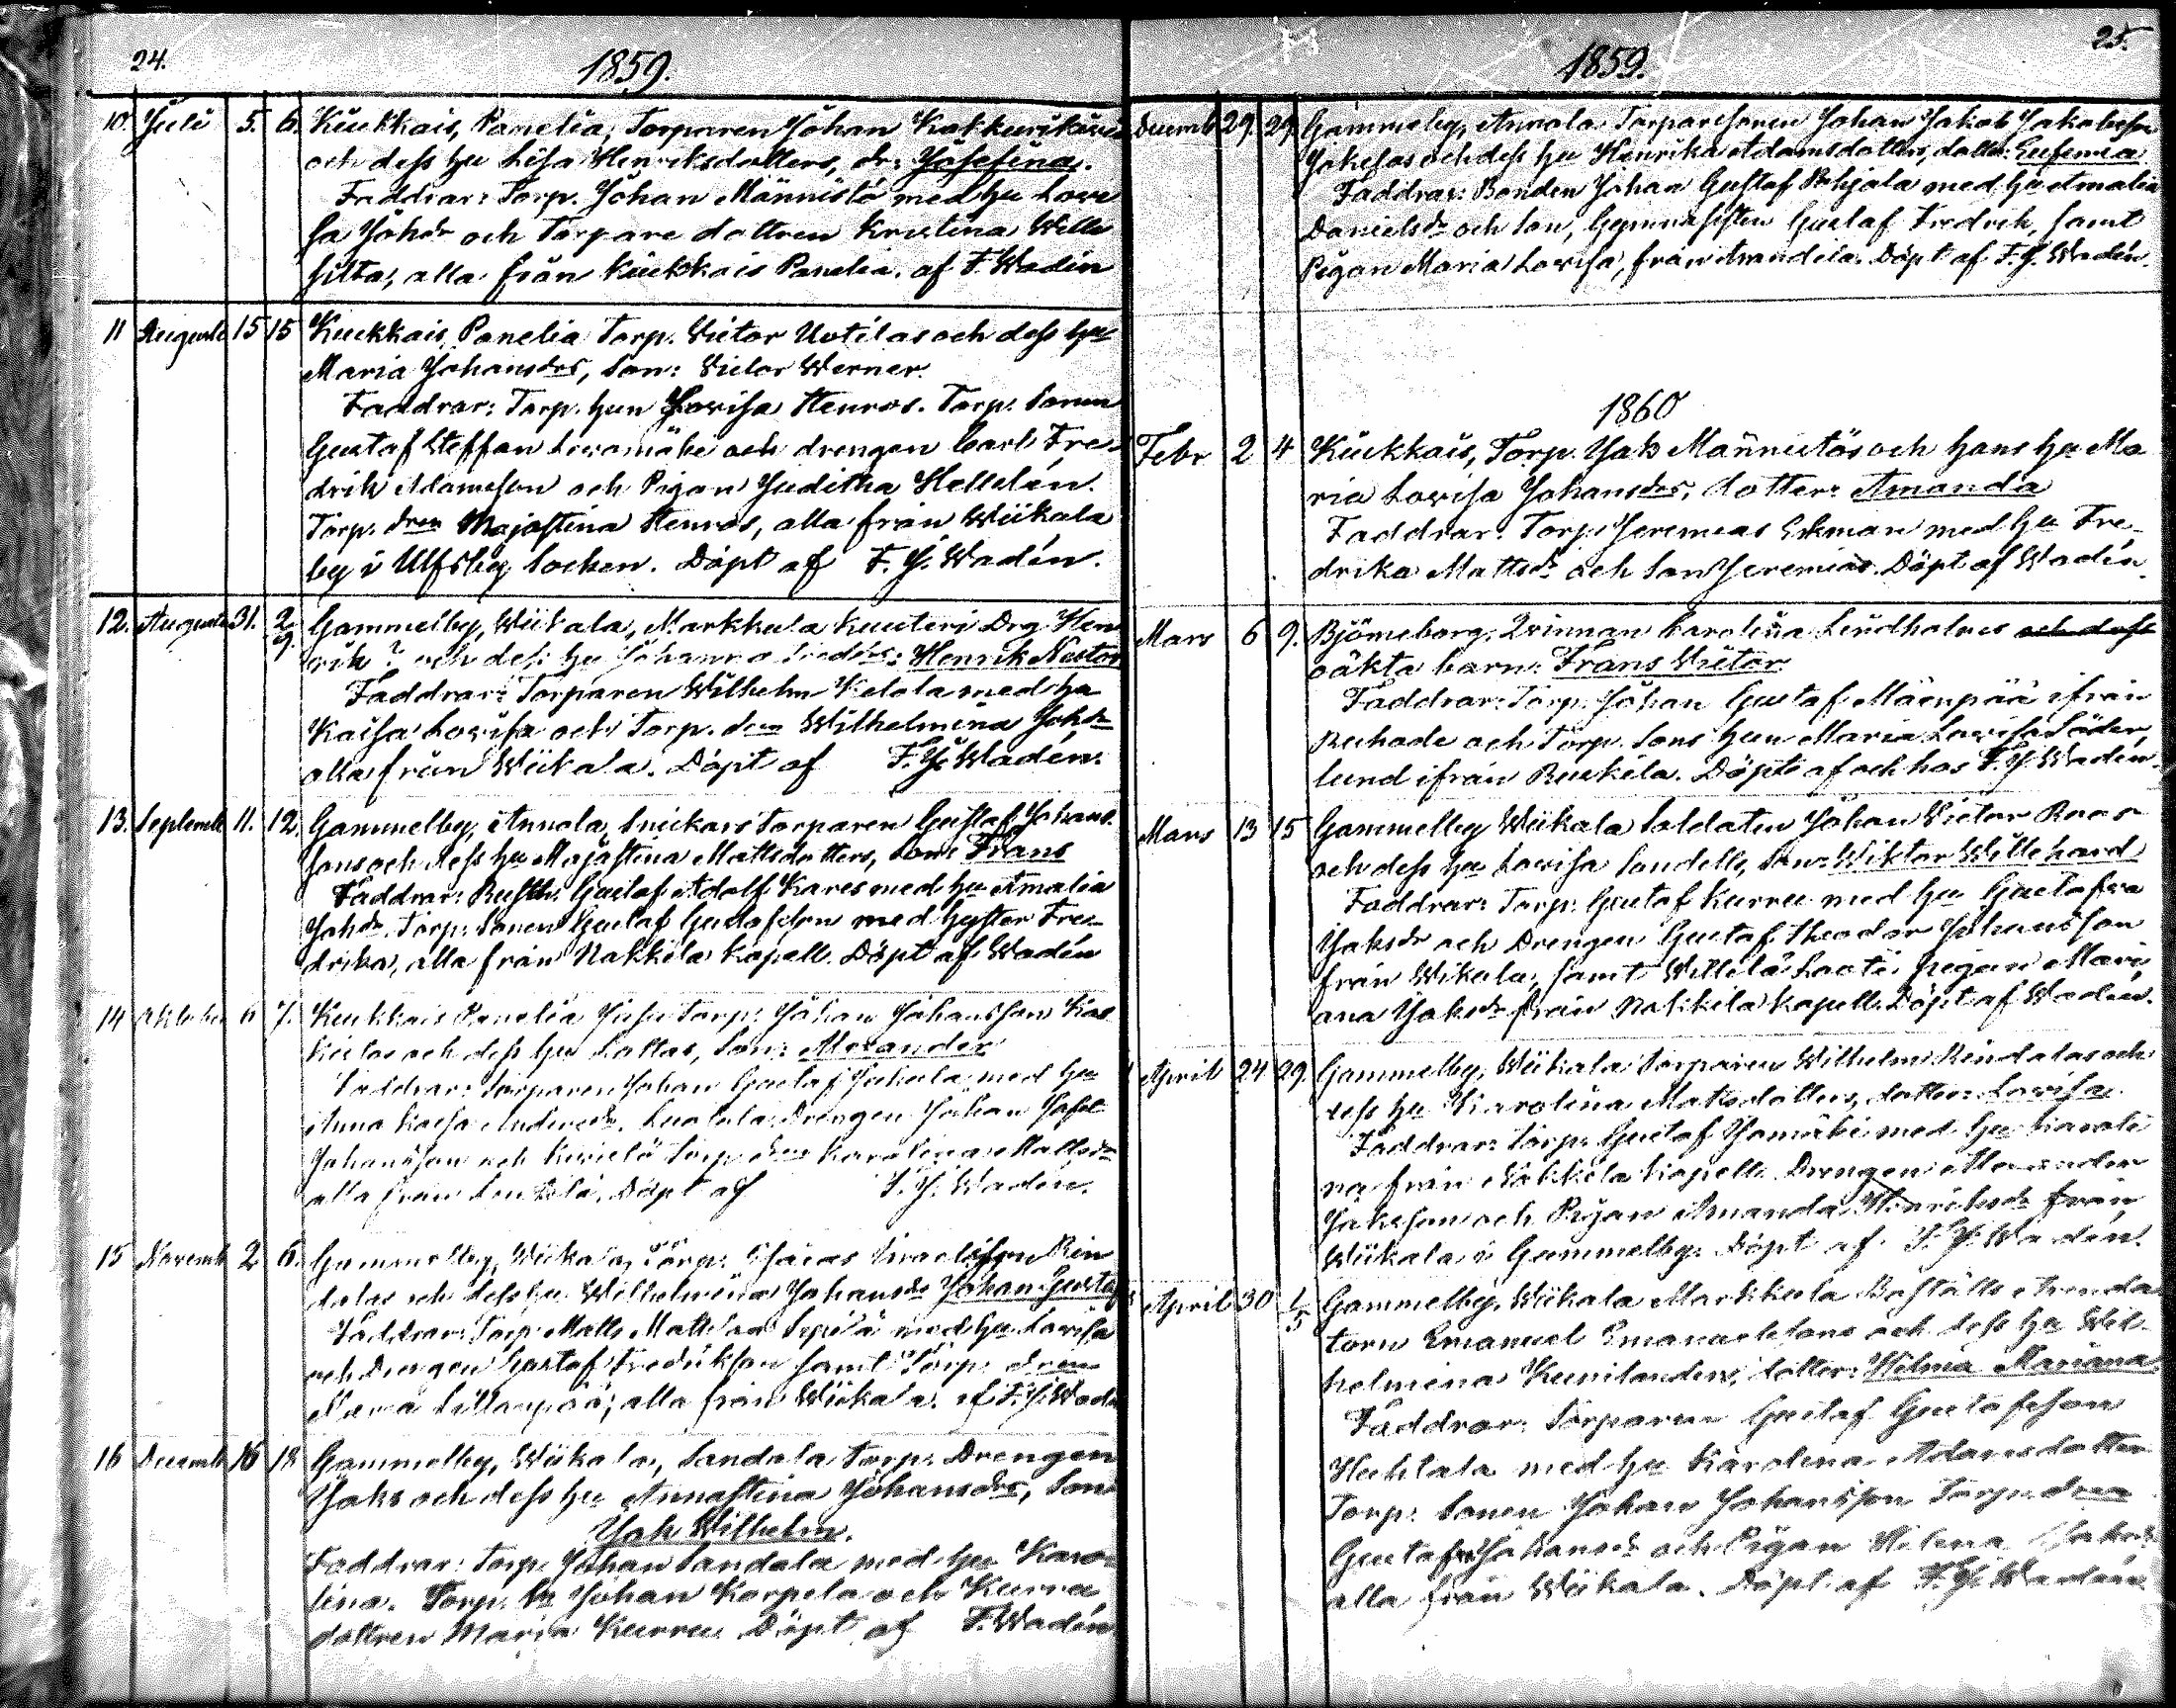 24.
1859.
10. Juli 5. 6. Kuukkais, Panelia, Torparen Johan
och dess hu Lisa Henriksdotters, dr: Josefina.
Faddrar: Torp. Johan Männistö med hu Lowi
sa Joh:dr och Torpare dottren Kristina Wille
silta, alla från Kuukkais Panelia. af F. Wadén
11 Augusti 15 15 Kuukkais, Panelia Torp. Victor Uotilas och dess hu
Maria Johansdrs, Son: Victor Werner.
Faddrar: Torp. hun Lowisa Stenros. Torp. Sonen
Gustaf Steffan och drengen Carl Fre-
drik Adamsson och Pigan Juditha Hellelén.
Torp. dren Majastina Stenros, alla från Wiikala
by i Ulfsby Socken. Döpt af F. J. Wadén.
12. Augusti 31. 2/9. Gammelby, Wiikala, Markkula Drg Hen
rik? och dess hu Johanna Henrik Nestor
Faddrar: Torparen Wilhelm Ketola med hu
Kaisa Lovisa och Torp. dren Wilhelmina Johdr
alla från Wiikala. Döpt af F. J. Wadén.
13. Septemb 11. 12. Gammelby, Annola, Snickars Torparen Gustaf Johans-
sons och dess hu Majastina Mattsdotters, son: Frans
Faddrar: Rusth. Gustaf Adolf Kares med hu Amalia
Johdr. Torp. Sonen Gustaf Gustafsson med Syster Fre-
drika, alla från Nakkila Kapell. Döpt af Wadén
14 Oktober 6 7. Kuukkais Panelia Torp. Johan Johansson
och dess hu Lottas, Son: Alexander
Faddrar: Torparen Johan Gustaf med hu
Anna Kaisa Drengen Johan
Johansson och Torp. dren Karolina Mattsdr
alla från Döpt af F. J. Wadén.
15 Novemb 2 6. Gammelby, Wiikala, Torp. Esaias Israelsson Rin
dalas och dess hu Wilhelmina Johansdr Johan Gustaf
Faddrar: Torp. Matts Mattsson Seppälä med hu Lovisa
och Drengen Gustaf Fredriksson samt Torp. dren
Maria alla från Wiikala. af F. J. Wadén
16 Decemb 16 18 Gammelby, Wiikala, Sandala Torp. Drengen
Jaks och dess hu Annastina Johansdrs, Son
Jak Wilhelm.
Faddrar: Torp. Johan Sandala med hu Karo-
lina. Torp. Johan Karpela och Kurra
dottren Maria Kurru Döpt af F. Wadén
25.
1859.
Decemb 29 29. Gammelby, Annola Torparesonen Johan Jakob Jakobsson
och dess hu Henrika Adamsdotters, dotter: Eufemia
Faddrar: Bonden Johan Gustaf Pohjala med hu Amalia
Danielsdr och Son, Gymnasisten Gustaf Fredrik, samt
Pigan Maria Lovisa, från Anandila. Döpt af F. J. Wadén.
1860
Febr 2 4 Kuukkais, Torp. Jak Männistös och hans hu Ma
ria Lovisa Johansdrs, dotter: Amanda
Faddrar: Torp. Jeremias Ekman med hu Fre-
drika Mattsdr och Son Jeremias. Döpt af Wadén.
Mars 6 9. Björneborg, Qvinnan Karolina Lindholms och dess
oäkta barn: Frans Victor.
Faddrar: Torp. Johan Gustaf Mäenpää ifrån
och Torp. Sons hun Maria Lovisa Söder-
lund ifrån Ruskila. Döpt af och hos F. J. Wadén.
Mars 13 15 Gammelby Wiikala Soldaten Johan Victor Roos
och dess hu Lovisa Sandell, Son: Wiktor Willehard
Faddrar: Torp. Gustaf Kurru med hu Gustafva
Jaksdr och Drengen Gustaf Theodor Johansson
från Wikala, samt Willilä Laoti pigan Mari
ana Jaksdr från Nakkila kapell. Döpt af Wadén.
April 24 29. Gammelby, Wiikala Torparen Wilhelm Rindalas och
dess hu Karolina Matsdotters, dotter: Lovisa.
Faddrar: Torp. Gustaf med hu Karoli
na från Nakkila Kapell. Drengen Alexander
Jaksson och Pigan Amanda Henriksdr från
Wiikala i Gammelby. Döpt af F. J. Wadén.
April 30 1/5 Gammelby, Wiikala Markkula Boställs Arenda
torn Emanuel Emanuelsons och dess hu Wil-
helmina dotter: Hilma Mariana.
Faddrar: Torparen Gustaf Gustafsson
Huhtala med hu Karolina Adamsdotter
Torp. Sonen Johan Johansson Torp. dren
Gustafva Johansdr och Pigan Helena Jaksdr
alla från Wiikala. Döpt af F. J. Wadén